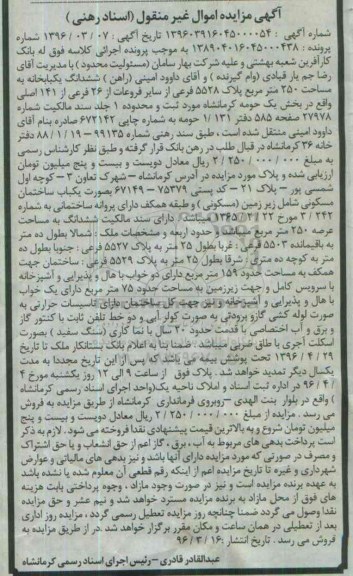 آگهی مزایده اموال غیر منقول (اسناد رهنی)
شماره آگهی : ۱۳۹۶۰۳۹۱۶۰۴۵۰۰۰۰۵۴ تاریخ آگهی : ۱۳۹۶/۰۳/۰۷ شماره
پرونده : ۱۳۸۹۰۴۰۱۶۰۴۵۰۰۰۴۳۸ به موجب پرونده اجرائی کلاسه فوق له بانک
کارآفرین شعبه بهشتی و علیه شرکت بهار سامان (مسئولیت محدود) با مدیریت آقای
رضا جم یار قبادی (وام گیرنده) و آقای داوود امینی (راهن) ششدانگ یکبابخانه به
مساحت ۲۵۰ متر مربع پلاک ۵۵۲۸ فرعی از سایر فروعات از ۲۶ فرعی از ۱۴۱ اصلی
واقع در بخش یک حومه کرمانشاه مورد ثبت و محدوده ۱ جلد سند مالکیت شماره
۲۷۹۷۸ صفحه ۵۸۵ دفتر ۱/۱۳۱ حومه به شماره چاپی ۶۷۲۱۴۲ صادره بنام آقای
داوود امینی منتقل شده است ، طبق سند رهنی شماره ۹۹۱۳۵-۸۸/۱/۱۹ دفتر
خانه ۳۶ کرمانشاه در قبال طلب در رهن بانک قرار گرفته و طبق نظر کارشناس رسمی
به مبلغ ۲/۲۵۰/۰۰۰/۰۰۰ ریال معادل دویست و بیست و پنج میلیون تومان
ارزیابی شده و پلاک مورد مزایده در آدرس کرمانشاه - شهرک تعاون ۳ - کوچه اول
شمسی پور - پلاک ۲۱ - کد پستی ۷۵۳۷۹-۶۷۱۴۹ بصورت یکباب ساختمان
مسکونی شامل زیر زمین (مسکونی) و طبقه همکف دارای پروانه ساختمانی به شماره
۳/۲۴۲ مورخ ۱۳۶۵/۲/۲۲ میباشد . دارای سند مالکیت ششدانگ به مساحت
عرصه ۲۵۰ متر مربع میباشد . حدود اربعه و مشخصات ملک : شمالا بطول ده متر
به باقیمانده ۵۵۰۳ فرعی : غربا بطول ۲۵ متر به پلاک ۵۵۲۷ فرعی : جنوبا بطول ده
متر به کوچه ده متری : شرقا بطول ۲۵ متر به پلاک ۵۵۲۹ فرعی : ساختمان جهت
همکف به مساحت حدود ۱۵۹ متر مربع دارای دو خواب با هال و پذیرایی و آشپزخانه
با سرویس کامل و جهت زیرزمین به مساحت حدود ۷۵ متر مربع دارای یک خواب
با هال و پذیرایی و آشپزخانه و تیر جهت کل ساختمان دارای تاسیسات حرارتی به
صورت لوله کشی گازو برودتی به صورت کولر آبی و دو خط تلفن ثابت با کنتور گاز
و برق و آب اختصاصی با قدمت حدود ۲۰ سال با نما کاری (سنگ سفید) بصورت
اسکلت آجری با طاق ضربی میباشد . ضمنا بنا به اعلام بانک بستانکار ملک تا تاریخ
۱۳۹۶/۴/۲۹ تحت پوشش بیمه می باشد که پس از این تاریخ مجددا به مدت
یکسال دیگر تمدید خواهد شد . پلاک فوق از ساعت ۹ الی ۱۲ روز یکشنبه مورخ ۴
/۹۶/۴ در اداره ثبت اسناد و املاک ناحیه یک (واحد اجرای اسناد رسمی کرمانشاه
) واقع در بلوار بنت الهدی -روبروی فرمانداری کرمانشاه از طریق مزایده به فروش
می رسد . مزایده از مبلغ ۲/۲۵۰/۰۰۰/۰۰۰ ریال معادل دویست و بیست و پنج
میلیون تومان شروع و به بالاترین قیمت پیشنهادی نقدا فروخته می شود . لازم به ذکر
است پرداخت بدهی های مربوط به آب ، برق ، گاز اعم از حق انشعاب و یا حق اشتراک
و مصرف در صورتی که مورد مزایده دارای آنها باشد و نیز بدهی های مالیاتی و عوارض
شهرداری و غیره تا تاریخ مزایده اعم از اینکه رقم قطعی آن معلوم شده یا نشده باشد
به عهده برنده مزایده است و نیز در صورت وجود مازاد ، وجوه پرداختی بابت هزینه
های فوق از محل مازاد به برنده مزایده مسترد خواهد شد و نیم عشر و حق مزایده
نقدا وصول می گردد ضمنا چنانچه روز مزایده تعطیل رسمی گردد ، مزایده روز اداری
بعد از تعطیلی در همان ساعت و مکان مقرر برگزار خواهد شد .در از طریق مزایده به
فروش می رسد . تاریخ انتشار :۹۶/۳/۱۶
عبدالقادر قادری -رئیس اجرای اسناد رسمی کرمانشاه